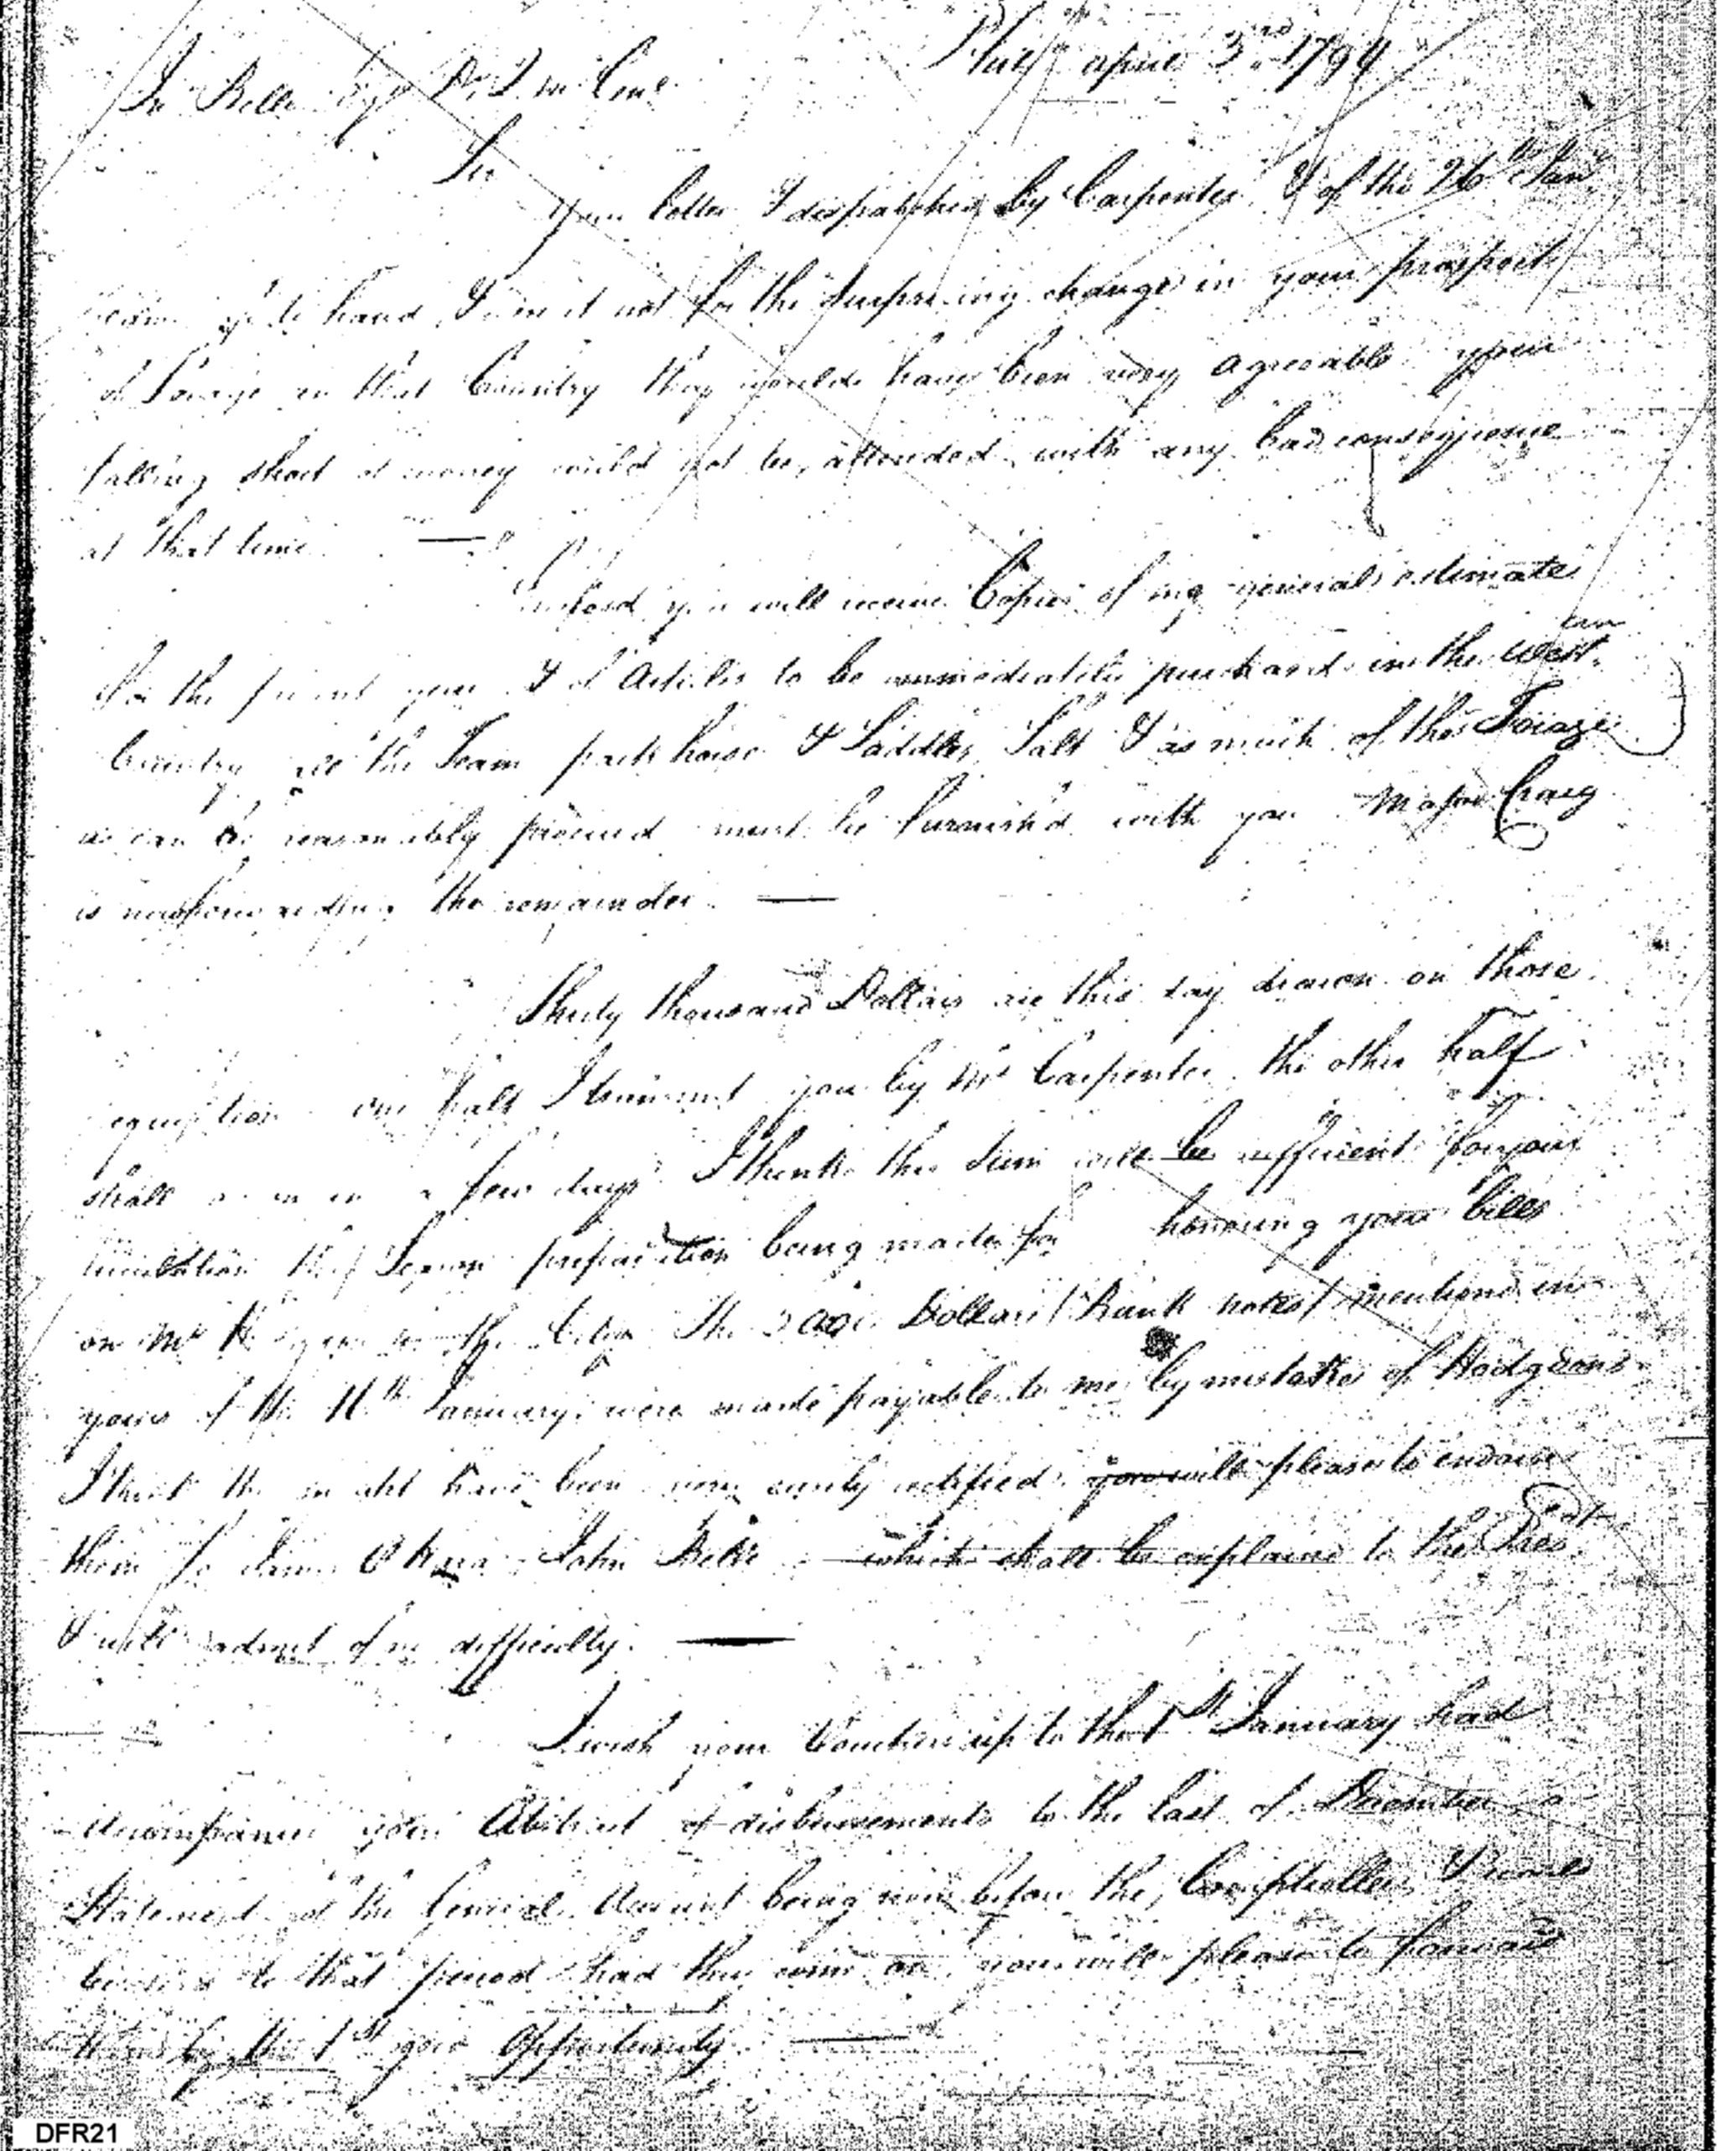 Phila april 3rd 1794
Jn Belli Esqr D. Q. M. Genl
Sir
Your letter I dispatched by Carpenter & of the 26th Jany
came to hand, & were it not for the surprising change in your prospects
of Forage in that Country they would have been very agreeable your
falling short of money could not be attended with any bad consequence
at that time
Enclosd you will receive Copies of my general estimate
for the present year & of Articles to be immediately purchased in the Westren
Country all the Team pack horse & Saddles, Salt & as much of the Forage
as can be reasonably procured must be furnish'd with you Major Craig
is now forwarding the remainder.
Thirty thousand Dollars are this day drawn on those
one half I transmit you by Mr Carpenter, the other half
shall in a few days I think this Sum will be sufficient for your
being made for honoring your bills
on Mr the 2000 Dollars / Bank notes / mentioned in
yours of the 11th January, were made payable to me by mistake of Hodgdons
I think this might have been very easily rectified you will please to endorse
them Jo James OHara John Belli which shall be explaind to the Presdt
& will admit of no difficulty.
I wish your Vouchers up to the 1st January had
accompanied your Abstract of disbursements to the last of December a
Statement of the General Account being now before the Comptroller & would
be to that period had they come on you will please to forward
them by the 1st good Opportunity
DFR21